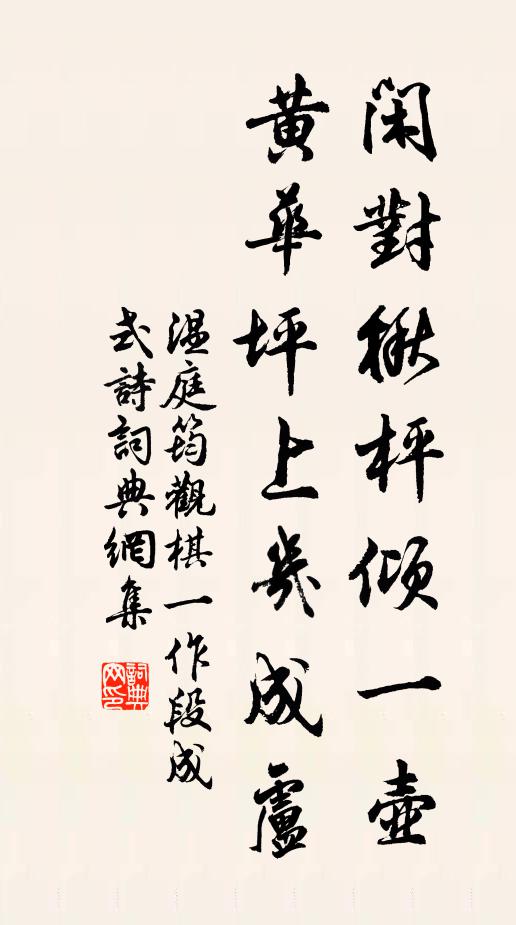 閑對楸枰傾一壺
黃華坪上幾成盧
溫庭筠觀棋一作段成
式詩詞典網集
詞典網印